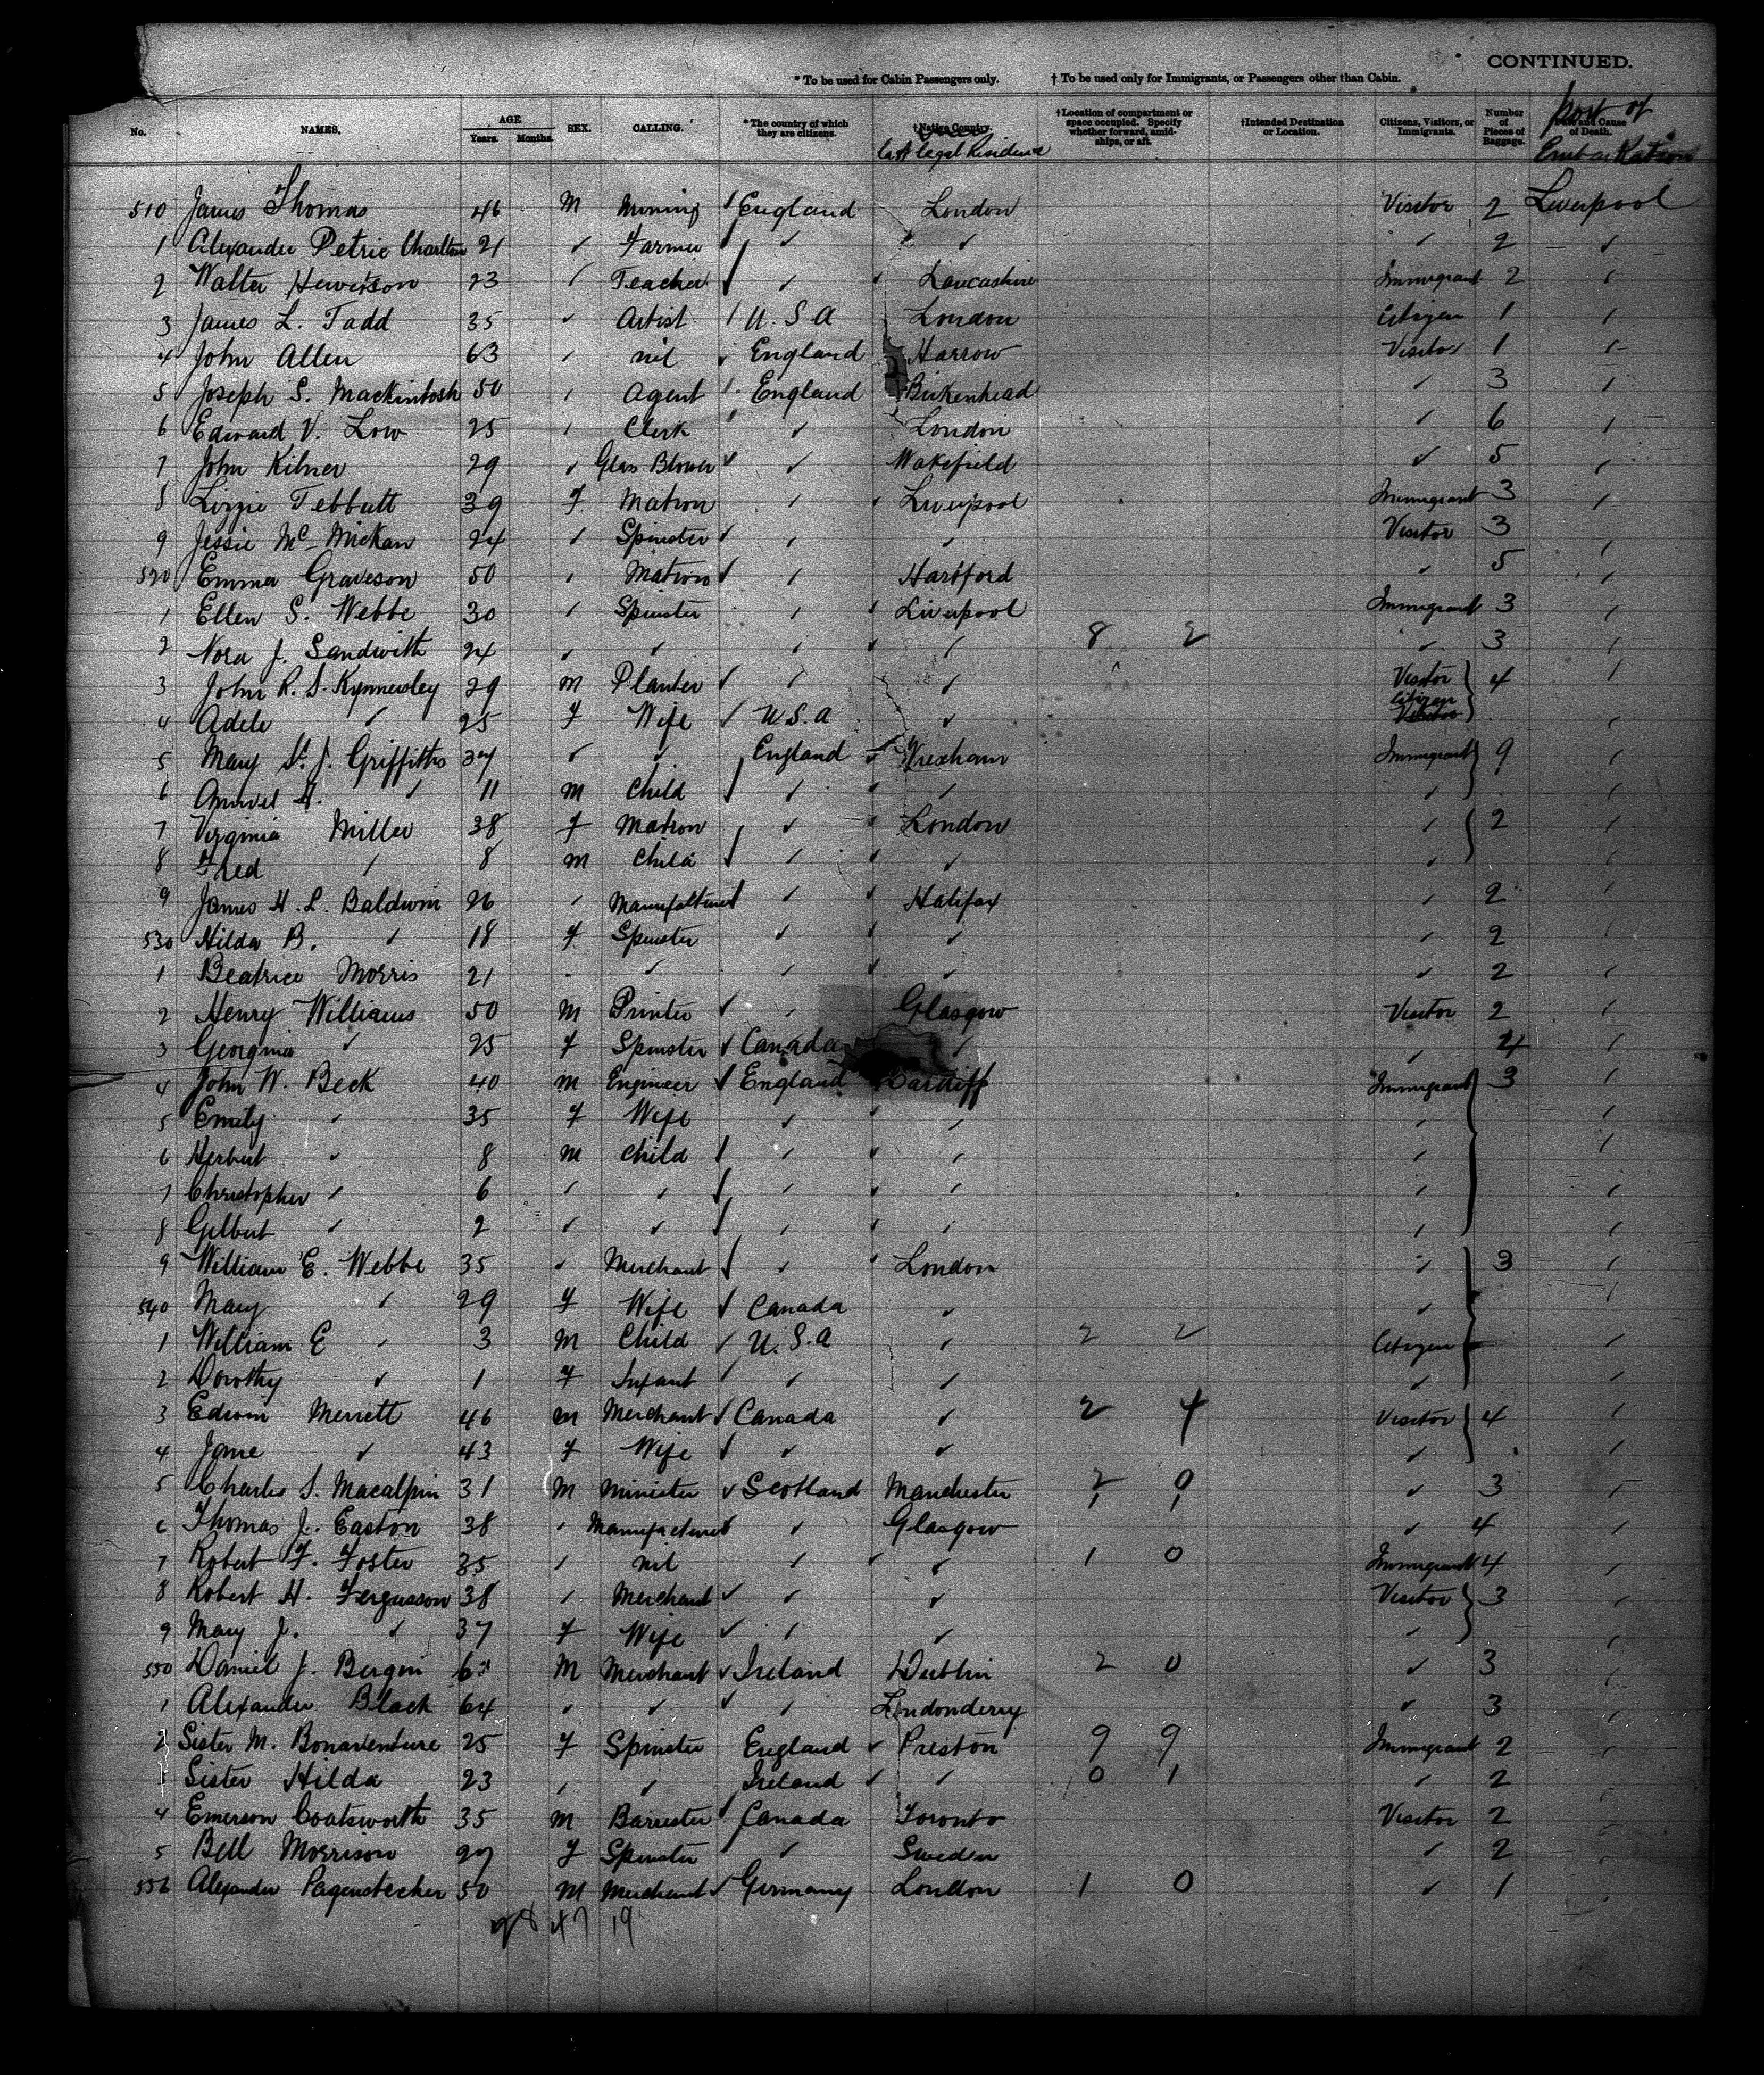 CONTINUED.
* To be used for Cabin Passengers only. † To be used only for Immigrants, or Passengers other than Cabin.
No. NAMES. AGE Years. Months. SEX. CALLING. * The country of which they are citizens. †Native Country. last legal Residence †Location of compartment or space occupied. Specify whether forward, amidships, or aft. †Intended Destination or Location. Citizens, Visitors, or Immigrants. Number of Pieces of Baggage. Date and Cause of Death. port of Embarkation
510 James Thomas 46 M Mining ✓ England London Visitor 2 Liverpool
1 Alexander Petrie Charlton 21 ✓ Farmer ✓ ✓ ✓ ✓ 2 ✓
2 Walter Hewitson 23 ✓ Teacher ✓ ✓ Lancashire Immigrant 2 ✓
3 James L. Tadd 35 ✓ Artist U.S.A London Citizen 1 ✓
4 John Allen 63 ✓ nil ✓ England Harrow Visitor 1 ✓
5 Joseph S. Mackintosh 50 ✓ Agent England Birkenhead ✓ 3 ✓
6 Edward V. Low 25 ✓ Clerk ✓ London ✓ 6 ✓
7 John Kilner 29 ✓ Glass Blower ✓ ✓ Wakefield ✓ 5 ✓
8 Lizzie Tebbutt 39 F Matron ✓ Liverpool Immigrant 3 ✓
9 Jessie Mc Mickan 24 ✓ Spinster ✓ ✓ ✓ Visitor 3 ✓
520 Emma Graveson 50 ✓ Matron ✓ ✓ Hartford ✓ 5 ✓
1 Ellen S. Webbe 30 ✓ Spinster ✓ Liverpool Immigrant 3 ✓
2 Nora J. Sandwith 24 ✓ ✓ ✓ ✓ 8 2 ✓ 3 ✓
3 John R. S. Kynnersley 29 M Planter ✓ ✓ ✓ Visitor 4 ✓
4 Adele ✓ 25 F Wife ✓ U.S.A ✓ Citizen Visitor ✓
5 Mary St. J. Griffiths 37 ✓ ✓ England Wrexham Immigrant 9 ✓
6 H. ✓ 11 M Child ✓ ✓ ✓ ✓ ✓
7 Virginia Miller 38 F Matron ✓ London ✓ 2 ✓
8 Fred ✓ 8 M Child ✓ ✓ ✓ ✓ ✓
9 James H. L. Baldwin 26 ✓ Manufacturer ✓ Halifax ✓ 2 ✓
530 Hilda B. ✓ 18 F Spinster ✓ ✓ ✓ 2 ✓
1 Beatrice Morris 21 ✓ ✓ ✓ ✓ ✓ 2 ✓
2 Henry Williams 50 M Printer ✓ ✓ Glasgow Visitor 2 ✓
3 Georgina ✓ 25 F Spinster ✓ Canada ✓ ✓ 4 ✓
4 John W. Beck 40 M Engineer ✓ England Cardiff Immigrant 3 ✓
5 Emily ✓ 35 F Wife ✓ ✓ ✓ ✓
6 Herbert ✓ 8 M Child ✓ ✓ ✓ ✓ ✓
7 Christopher ✓ 6 ✓ ✓ ✓ ✓ ✓ ✓ ✓
8 Gilbert ✓ 2 ✓ ✓ ✓ ✓ ✓ ✓ ✓
9 William E. Webbe 35 ✓ Merchant ✓ ✓ London ✓ 3 ✓
540 Mary ✓ 29 F Wife ✓ Canada ✓ ✓ ✓
1 William E ✓ 3 M Child ✓ U.S.A ✓ 2 2 Citizen ✓
2 Dorothy ✓ 1 F Infant ✓ ✓ ✓ ✓ ✓
3 Edwin Merrett 46 M Merchant ✓ Canada ✓ 2 4 Visitor 4 ✓
4 Jane ✓ 43 F Wife ✓ ✓ ✓ ✓ ✓
5 Charles S. Macalpin 31 M Minister ✓ Scotland Manchester 2 0 ✓ 3 ✓
6 Thomas J. Easton 38 ✓ Manufacturer ✓ Glasgow 1 1 ✓ 4 ✓
7 Robert F. Foster 35 ✓ nil ✓ ✓ 1 0 Immigrant 4 ✓
8 Robert H. Fergusson 38 ✓ Merchant ✓ ✓ ✓ Visitor 3 ✓
9 Mary J. ✓ 37 F Wife ✓ ✓ ✓ ✓ ✓
550 Daniel J. Bergin M Merchant ✓ Ireland Dublin 2 0 ✓ 3 ✓
1 Alexander Black 64 ✓ ✓ ✓ ✓ Londonderry ✓ 3 ✓
2 Sister M. Bonaventure 25 F Spinster England ✓ Preston 9 9 Immigrant 2 ✓
3 Sister Hilda 23 ✓ ✓ Ireland ✓ ✓ 0 1 ✓ 2 ✓
4 Emerson Coatsworth 35 M Barrister ✓ Canada Toronto Visitor 2 ✓
5 Bell Morrison 27 F Spinster ✓ Sweden ✓ 2 ✓
556 Alexander Pagenstecher 50 M Merchant ✓ Germany London 1 0 ✓ 1 ✓
28 47 19